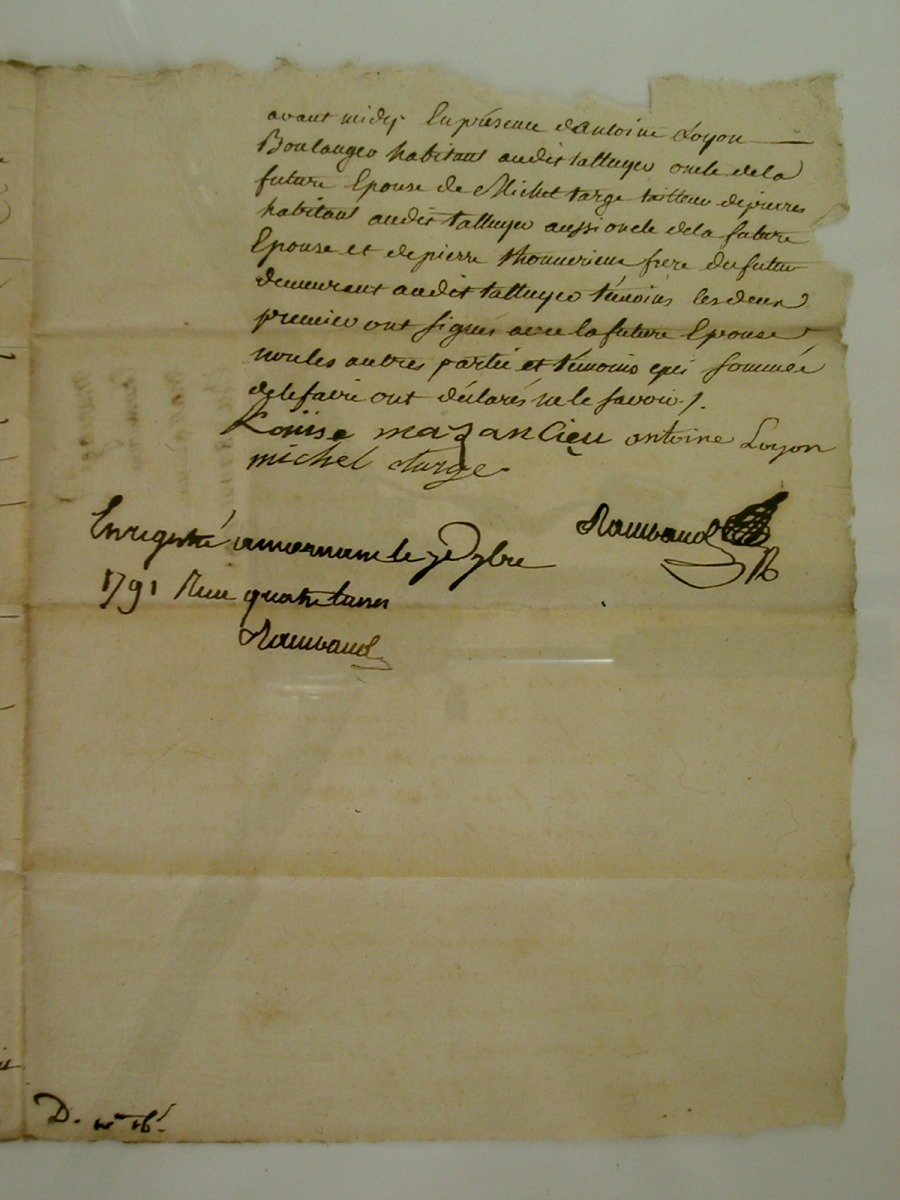 avant midy. En présence d'antoine Loyon
Boulanger habitant audit talluyer oncle de la
future Epouse de Michel targe tailleur de pierres
habitant audit talluyer aussi oncle de la future
Epouse et de pierre thonnerieux frere du futur
demeurant audit talluyer témoins les deux
premier ont signés avec la future Epouse
non les autres partie et témoins qui sommée
de le faire ont déclarés ne le savoir ./.
Louise mazancieu antoine Loyon
michel targe
Enregistré a mornant le 7bre
1791 Reçu quatre
Rambaud
Rambaud
D.